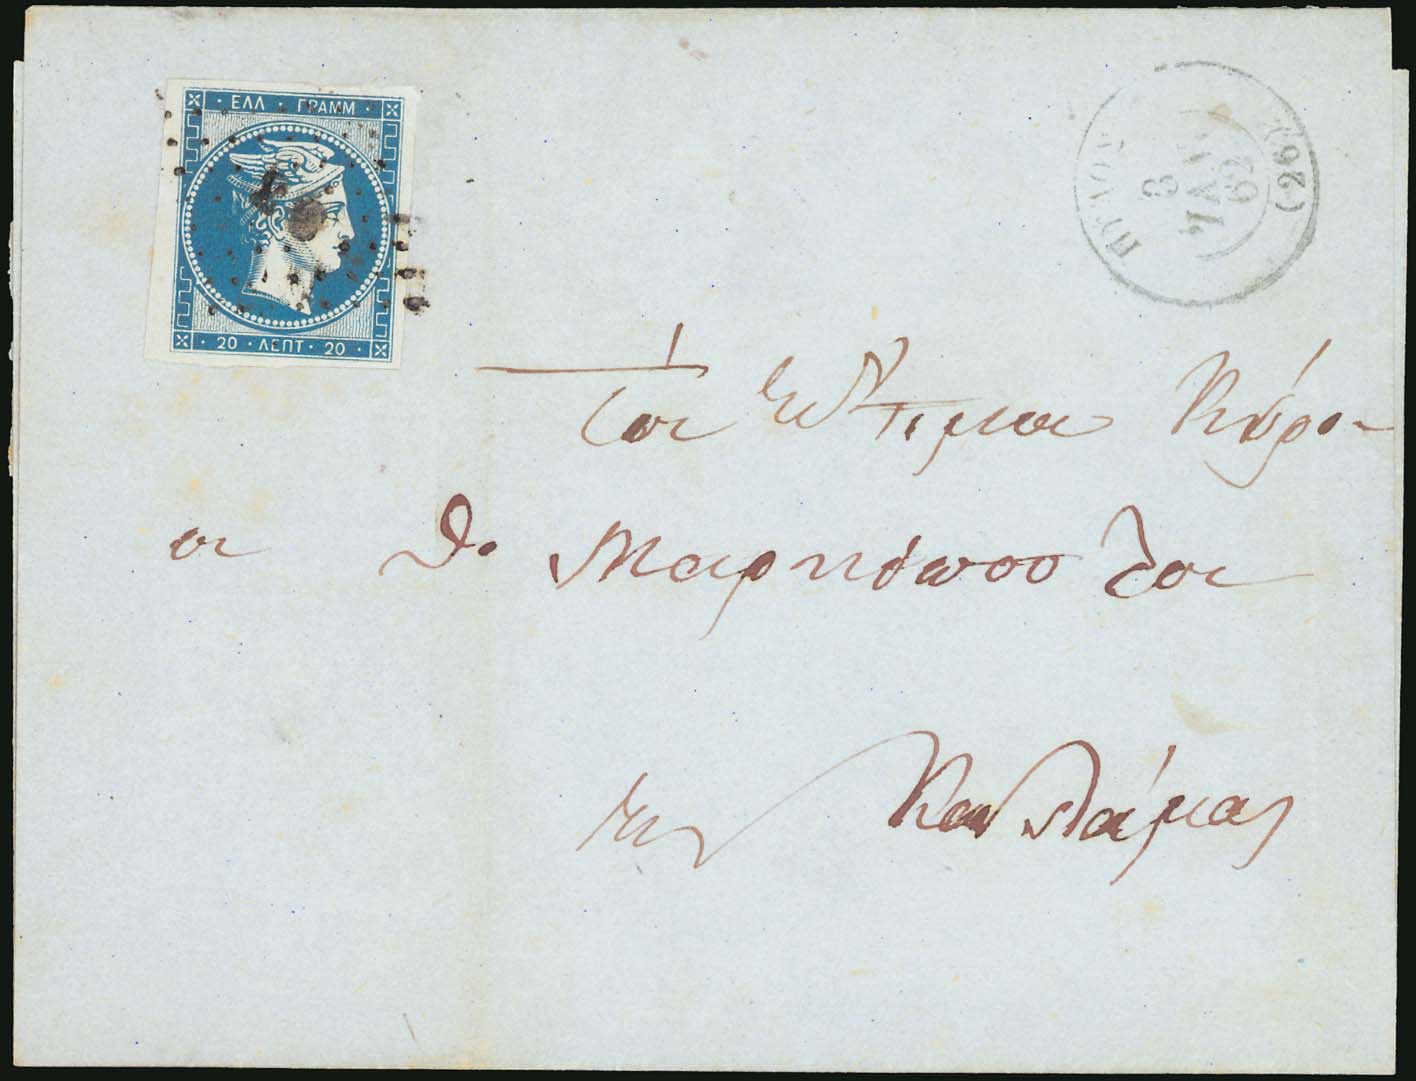 ΕΛΛ · ΓΡΑΜΜ
20 · ΛΕΠΤ · 20
ΠΥΛΟΣ
8
ΙΑΝ
62
(26)
Τῶι Ἐντίμωι Κύρι-
ωι Θ. Μαρκόπουλωι
Καλάμας